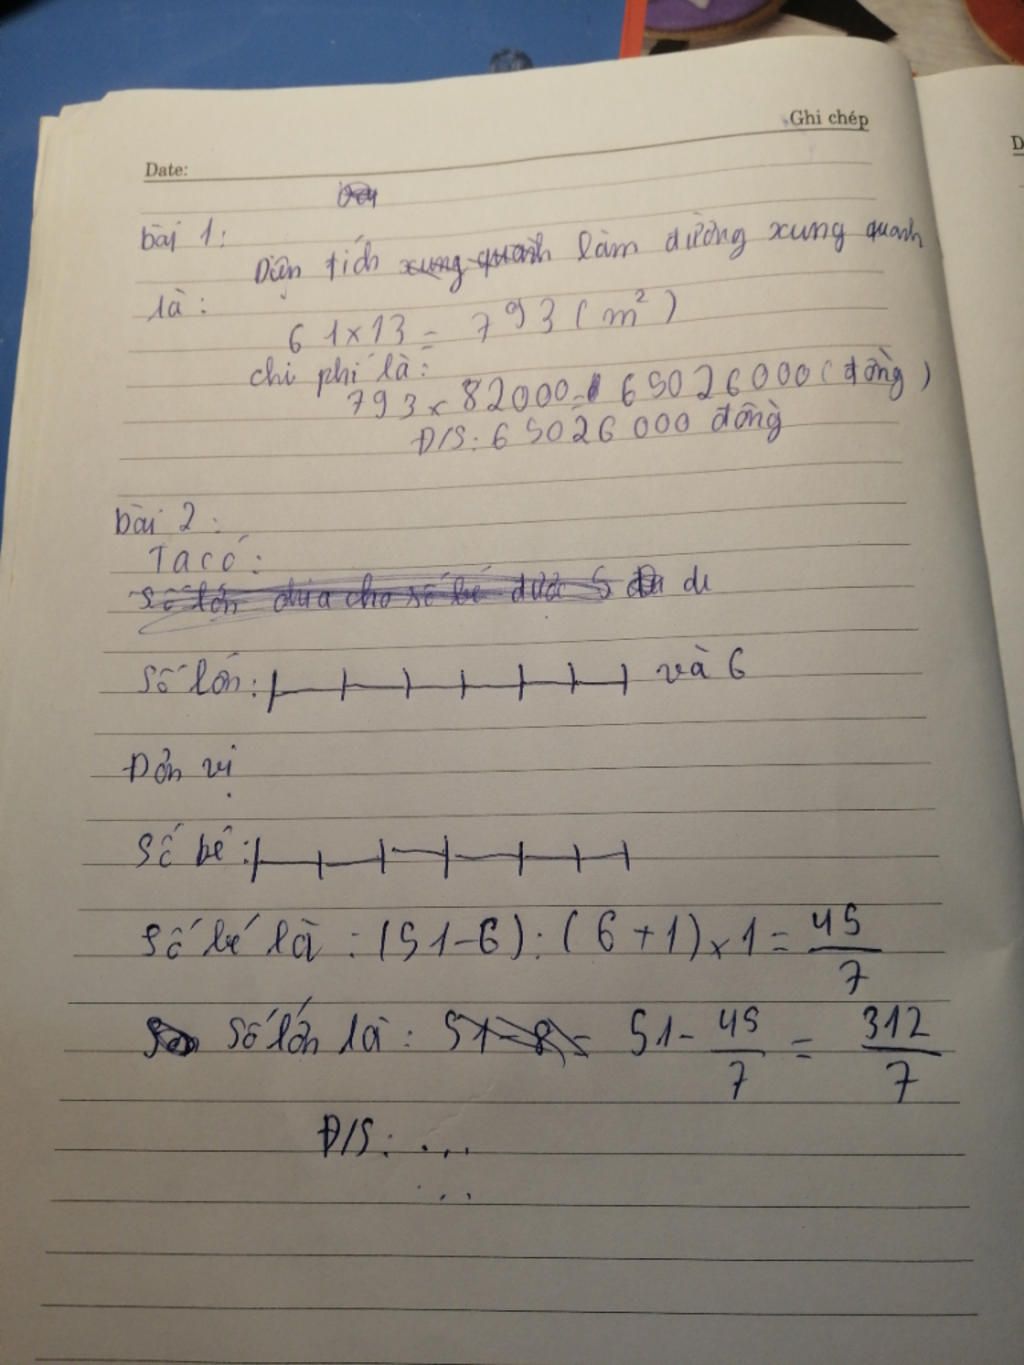 Ghi chép
Date:
bài 1:
Diện tích xung quanh làm đường xung quanh
là:
61 x 13 = 793 (m²)
chi phí là:
793 x 82000 = 65026000 (đồng)
Đ/S: 65026000 đồng
bài 2:
Ta có:
Số lớn chia cho số bé được 5 dư
Số lớn: và 6
Đơn vị
Số bé:
Số bé là: (51-6) : (6+1) x 1 = 45/7
Số lớn là: 51-8 = 51 - 45/7 = 312/7
Đ/S: ...
...